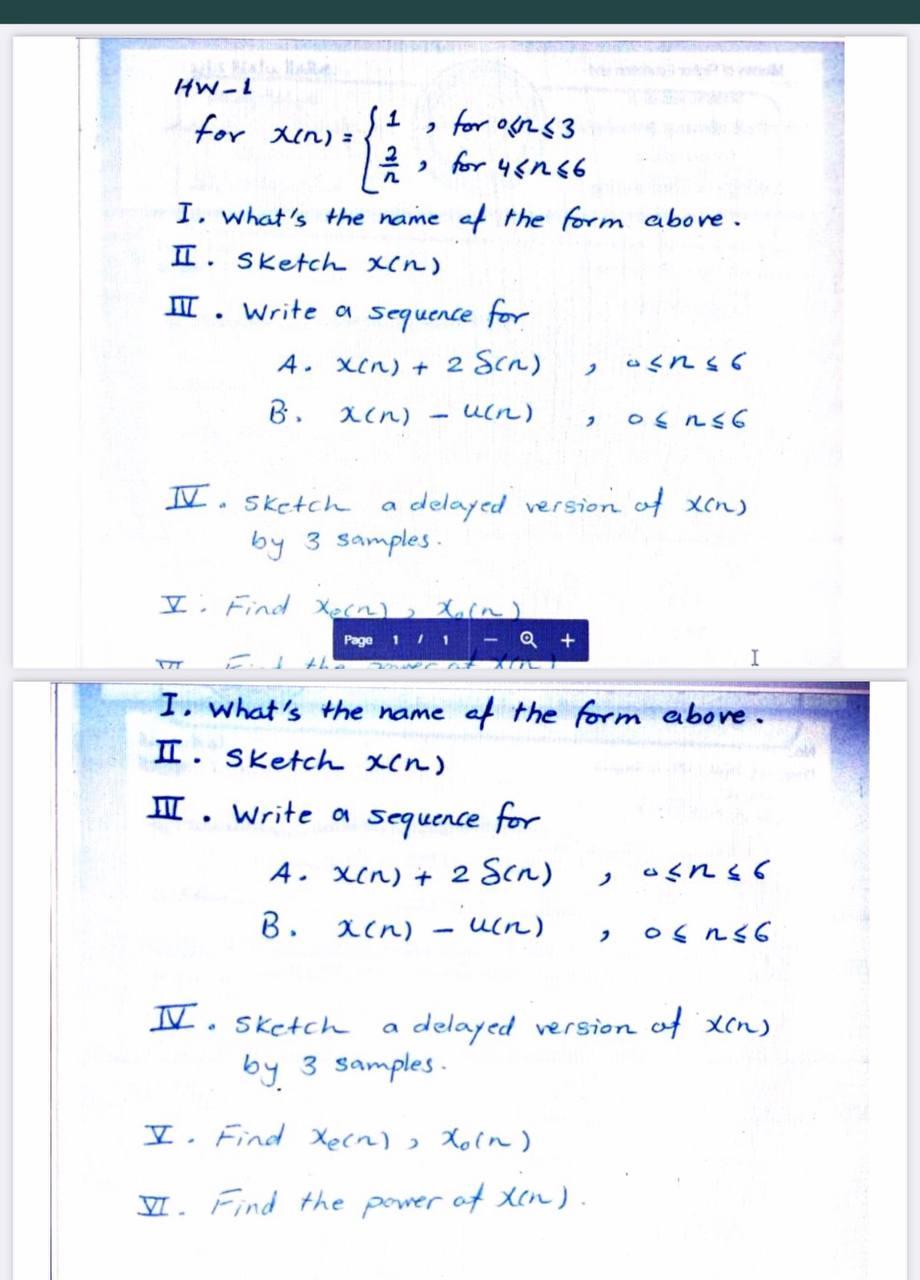 HW-1
for x(n) = { 1 , for 0≤n≤3
2/n , for 4≤n≤6
I. What's the name of the form above.
II. Sketch x(n)
III. Write a sequence for
A. x(n) + 2 δ(n) , 0≤n≤6
B. x(n) - u(n) , 0≤n≤6
IV. Sketch a delayed version of x(n)
by 3 samples.
V. Find xe(n), xo(n)
Page 1 / 1 - +
I. What's the name of the form above.
II. Sketch x(n)
III. Write a sequence for
A. x(n) + 2 δ(n) , 0≤n≤6
B. x(n) - u(n) , 0≤n≤6
IV. Sketch a delayed version of x(n)
by 3 samples.
V. Find xe(n), xo(n)
VI. Find the power of x(n).